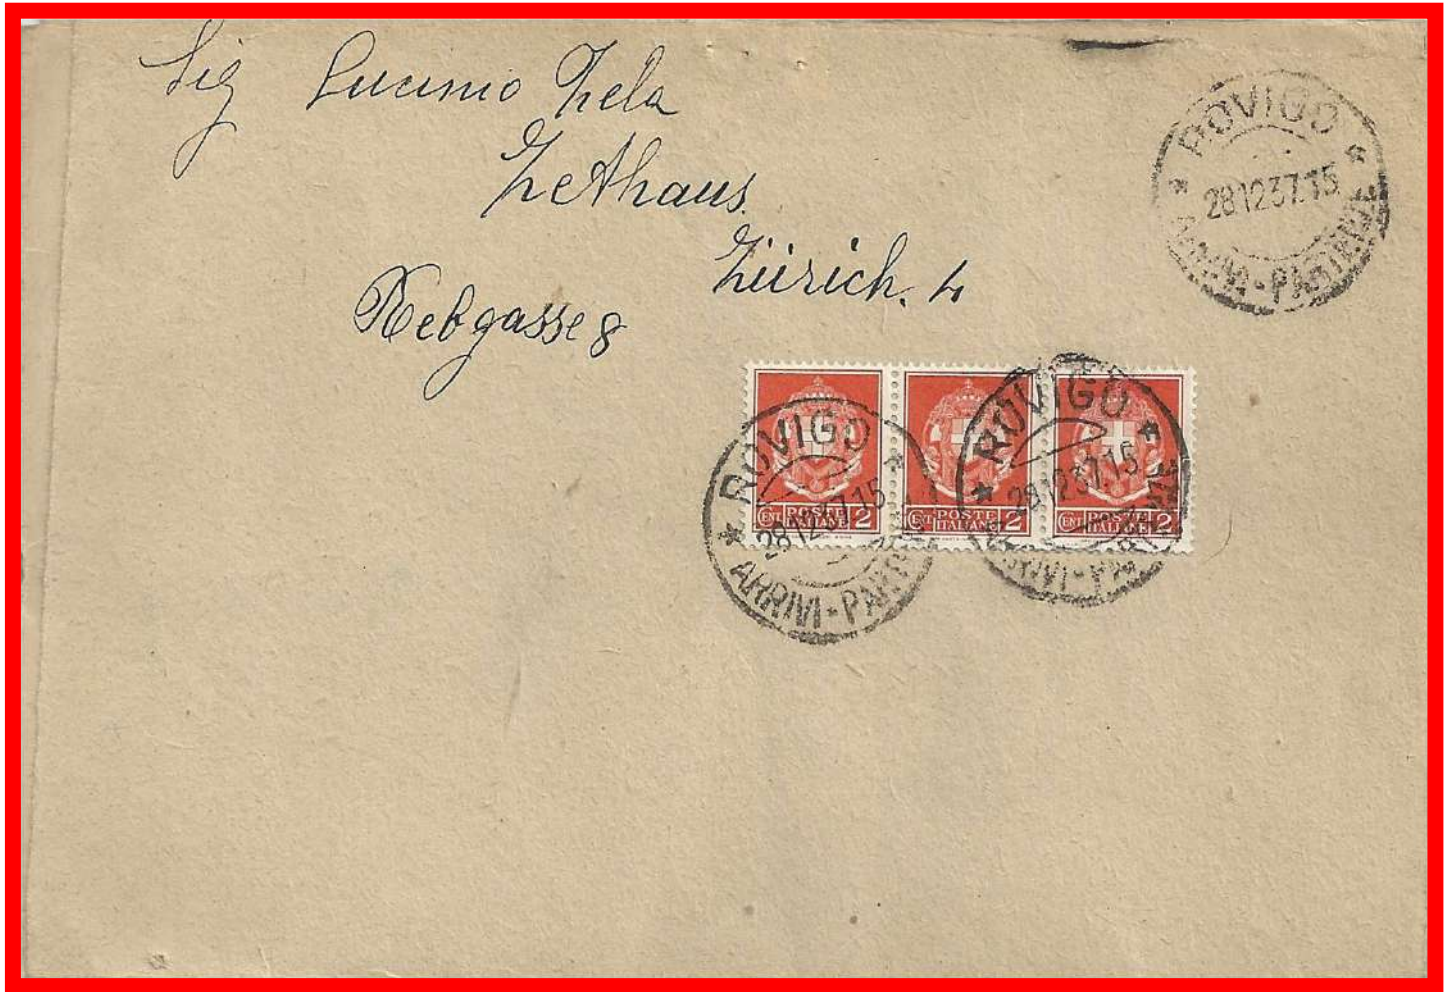 Sig Lucinio Zela
ZeAhaus.
Zürich. 4
Rebgasse 8
ROVIGO
28.12.37.15
ARRIVI-PARTENZE
CENT POSTE ITALIANE 2
CENT POSTE ITALIANE 2
CENT POSTE ITALIANE 2
ROVIGO
28.12.37.15
ARRIVI-PARTENZE
ROVIGO
28.12.37.15
ARRIVI-PARTENZE